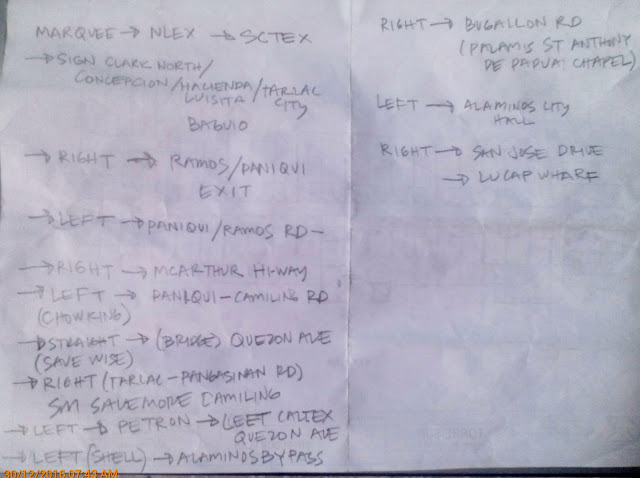 MARQUEE → NLEX → SCTEX
→ SIGN CLARK NORTH/
CONCEPCION/HACIENDA/TARLAC
LUISITA CITY
BAGUIO
→ RIGHT → RAMOS/PANIQUI
EXIT
→ LEFT → PANIQUI/RAMOS RD -
→ RIGHT → MCARTHUR HI-WAY
→ LEFT → PANIQUI - CAMILING RD
(CHOWKING)
→ STRAIGHT → (BRIDGE) QUEZON AVE
(SAVE WISE)
→ RIGHT (TARLAC - PANGASINAN RD)
SM SAVEMORE CAMILING
→ LEFT → PETRON → LEFT CALTEX
QUEZON AVE
→ LEFT (SHELL) → ALAMINOS BYPASS
RIGHT → BUGALLON RD
(PALAMIS ST ANTHONY
DE PADUA CHAPEL)
LEFT → ALAMINOS CITY
HALL
RIGHT → SAN JOSE DRIVE
→ LUCAP WHARF
30/12/2016 07:43 AM